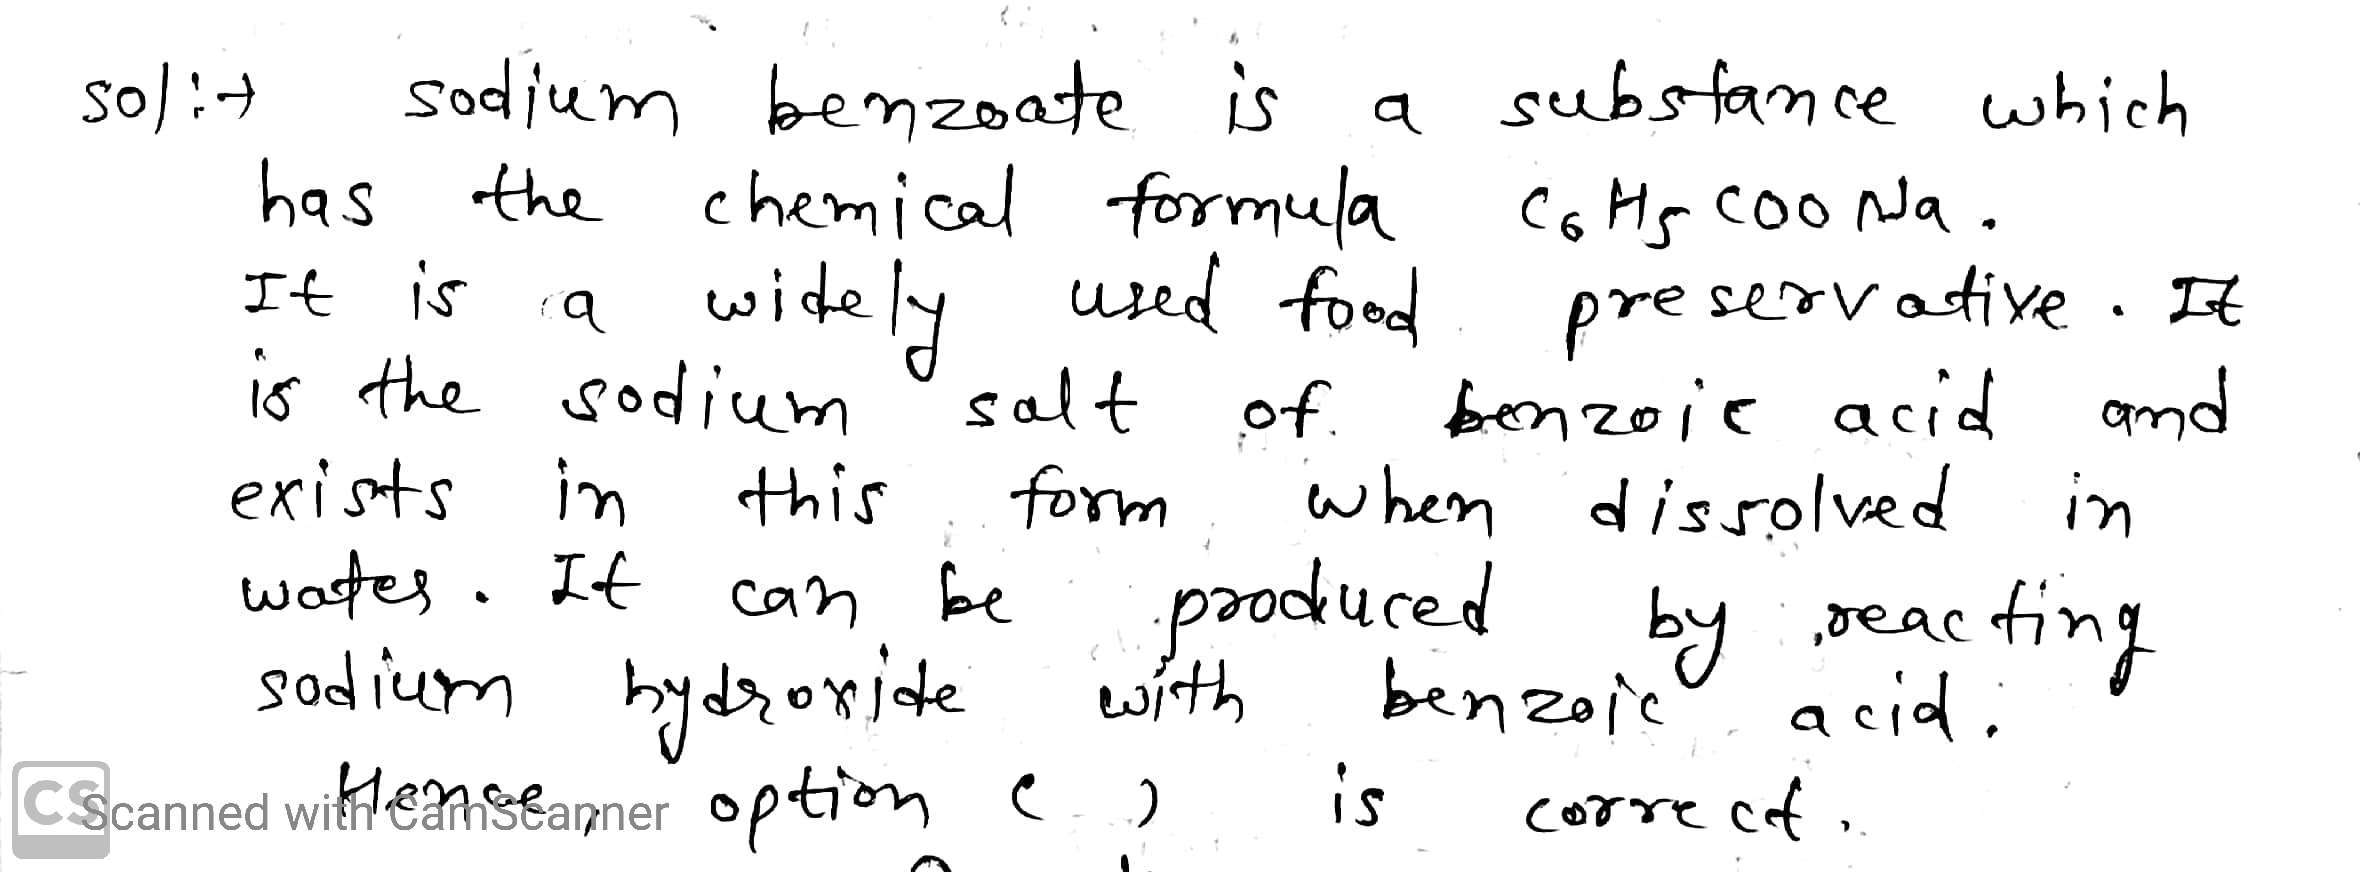 sol:→ sodium benzoate is a substance which
has the chemical formula C6H5COONa.
It is a widely used food preservative. It
is the sodium salt of benzoic acid and
exists in this form when dissolved in
water. It can be produced by reacting
sodium hydroxide with benzoic acid.
Hence, option ( ) is correct.
CS Scanned with CamScanner